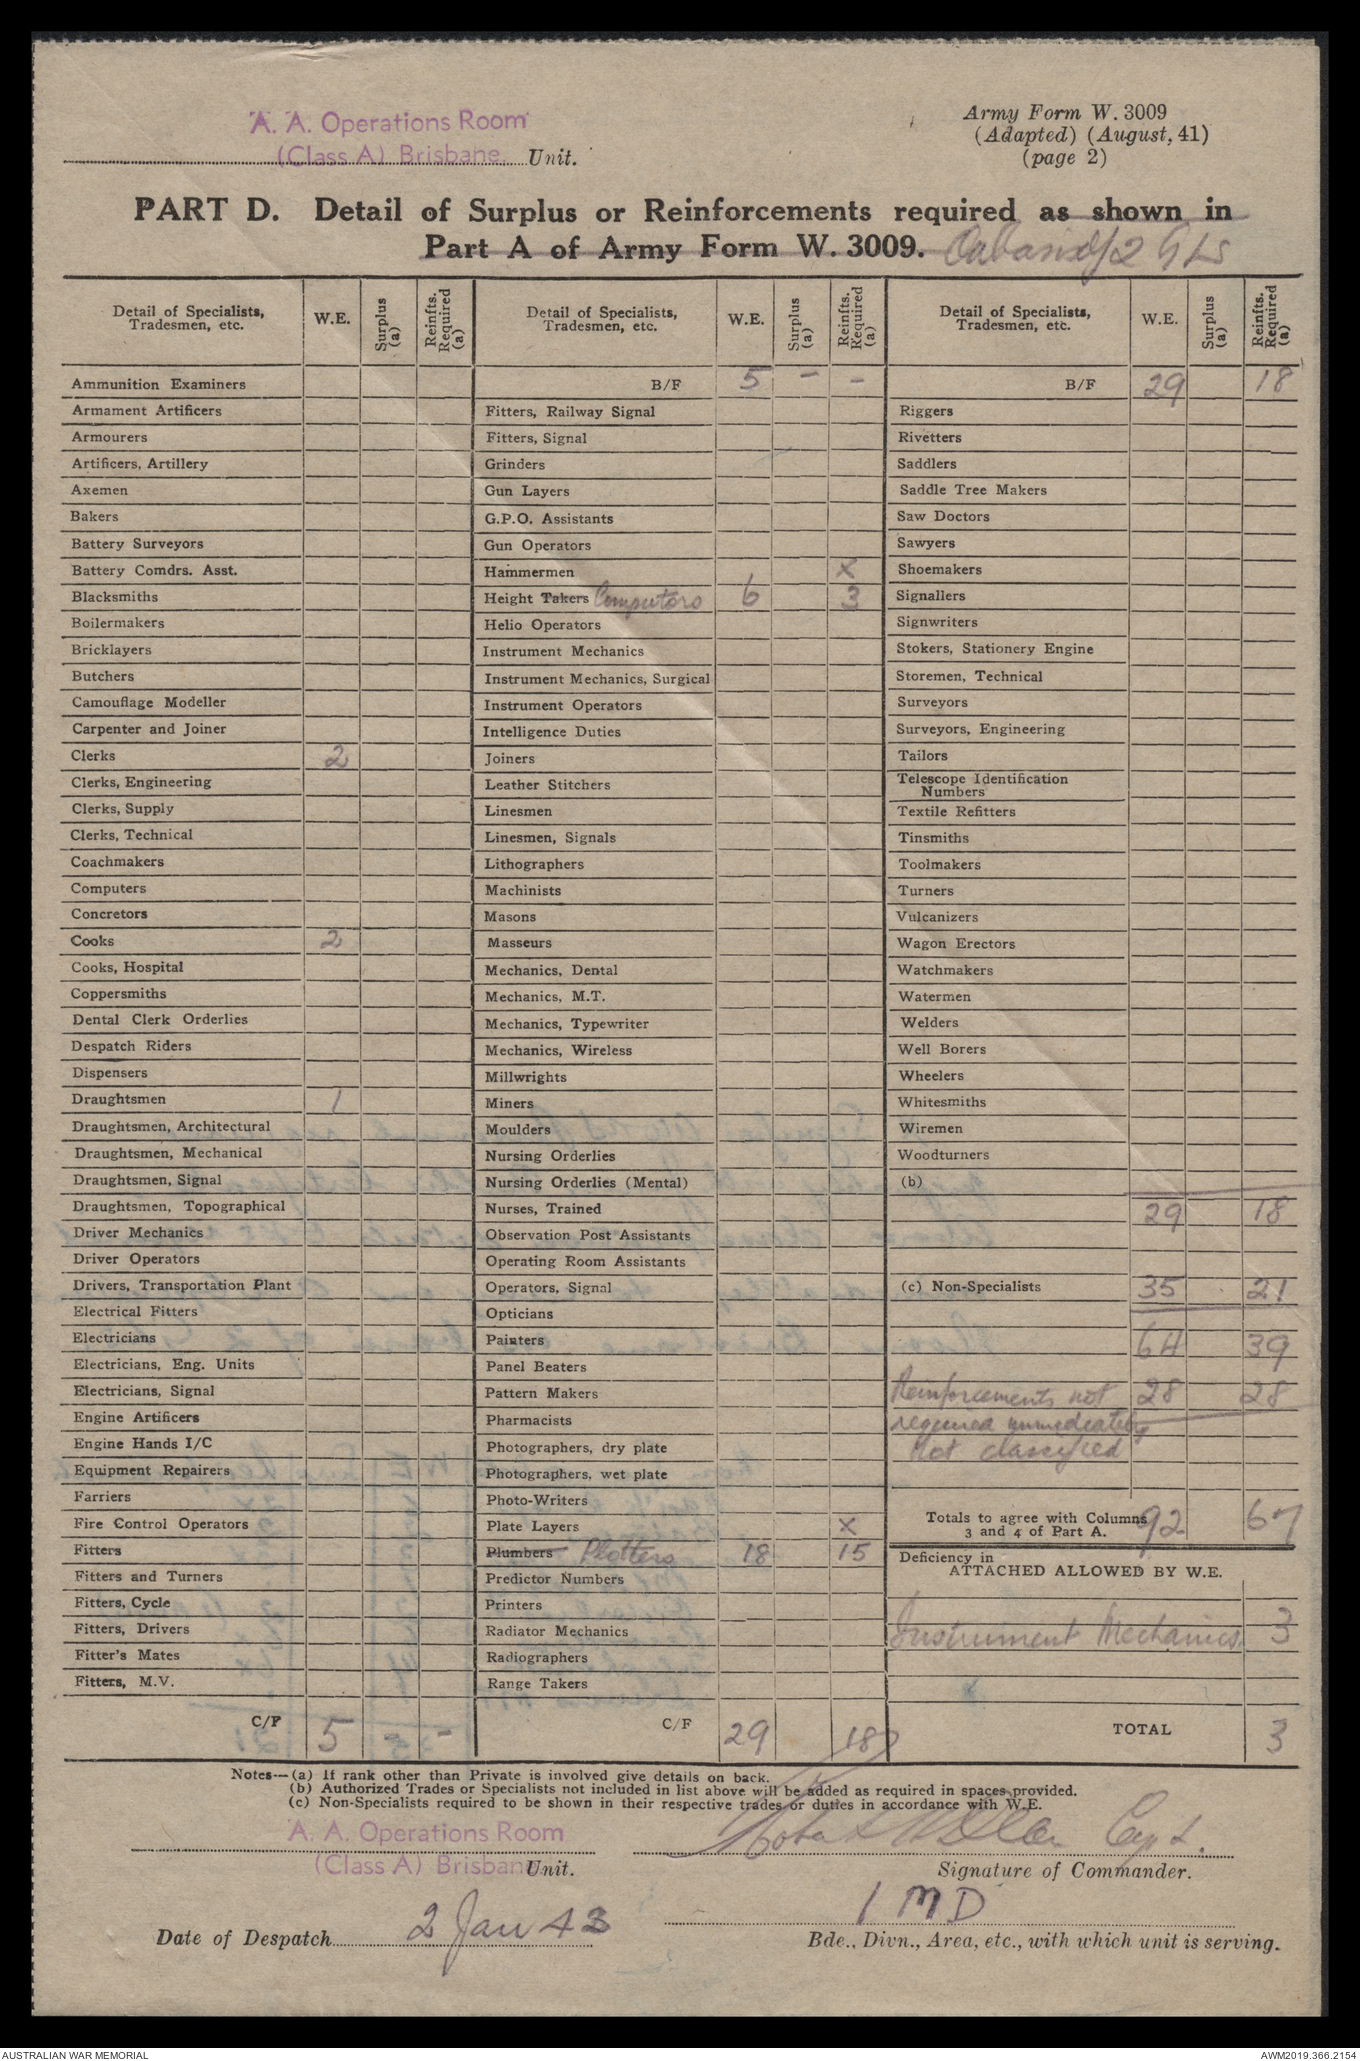 A. A. Operations Room
(Class A) Brisbane. Unit.
Army Form W. 3009
(Adapted) (August, 41)
(page 2)
PART D. Detail of Surplus or Reinforcements required as shown in
Part A of Army Form W. 3009. 2 GLs
Detail of Specialists, Tradesmen, etc. W.E. Surplus (a) Reinfts. Required (a)
Ammunition Examiners
Armament Artificers
Armourers
Artificers, Artillery
Axemen
Bakers
Battery Surveyors
Battery Comdrs. Asst.
Blacksmiths
Boilermakers
Bricklayers
Butchers
Camouflage Modeller
Carpenter and Joiner
Clerks 2
Clerks, Engineering
Clerks, Supply
Clerks, Technical
Coachmakers
Computers
Concretors
Cooks 2
Cooks, Hospital
Coppersmiths
Dental Clerk Orderlies
Despatch Riders
Dispensers
Draughtsmen 1
Draughtsmen, Architectural
Draughtsmen, Mechanical
Draughtsmen, Signal
Draughtsmen, Topographical
Driver Mechanics
Driver Operators
Drivers, Transportation Plant
Electrical Fitters
Electricians
Electricians, Eng. Units
Electricians, Signal
Engine Artificers
Engine Hands I/C
Equipment Repairers
Farriers
Fire Control Operators
Fitters
Fitters and Turners
Fitters, Cycle
Fitters, Drivers
Fitter's Mates
Fitters, M.V.
C/F 5 - -
Detail of Specialists, Tradesmen, etc. W.E. Surplus (a) Reinfts. Required (a)
B/F 5 - -
Fitters, Railway Signal
Fitters, Signal
Grinders
Gun Layers
G.P.O. Assistants
Gun Operators
Hammermen x
Height Takers Computors 6 3
Helio Operators
Instrument Mechanics
Instrument Mechanics, Surgical
Instrument Operators
Intelligence Duties
Joiners
Leather Stitchers
Linesmen
Linesmen, Signals
Lithographers
Machinists
Masons
Masseurs
Mechanics, Dental
Mechanics, M.T.
Mechanics, Typewriter
Mechanics, Wireless
Millwrights
Miners
Moulders
Nursing Orderlies
Nursing Orderlies (Mental)
Nurses, Trained
Observation Post Assistants
Operating Room Assistants
Operators, Signal
Opticians
Painters
Panel Beaters
Pattern Makers
Pharmacists
Photographers, dry plate
Photographers, wet plate
Photo-Writers
Plate Layers x
Plumbers Plotters 18 15
Predictor Numbers
Printers
Radiator Mechanics
Radiographers
Range Takers
C/F 29 18
Detail of Specialists, Tradesmen, etc. W.E. Surplus (a) Reinfts. Required (a)
B/F 29 18
Riggers
Rivetters
Saddlers
Saddle Tree Makers
Saw Doctors
Sawyers
Shoemakers
Signallers
Signwriters
Stokers, Stationery Engine
Storemen, Technical
Surveyors
Surveyors, Engineering
Tailors
Telescope Identification
Numbers
Textile Refitters
Tinsmiths
Toolmakers
Turners
Vulcanizers
Wagon Erectors
Watchmakers
Watermen
Welders
Well Borers
Wheelers
Whitesmiths
Wiremen
Woodturners
(b)
29 18
(c) Non-Specialists 35 21
64 39
Reinforcements not 28 28
required immediately
not classified
Totals to agree with Columns
3 and 4 of Part A. 92 67
Deficiency in
ATTACHED ALLOWED BY W.E.
Instrument Mechanics 3
TOTAL 3
Notes—(a) If rank other than Private is involved give details on back.
(b) Authorized Trades or Specialists not included in list above will be added as required in spaces provided.
(c) Non-Specialists required to be shown in their respective trades or duties in accordance with W.E.
A. A. Operations Room
(Class A) Brisbane Unit.
Capt.
Signature of Commander.
1 M D
Date of Despatch 2 Jan 43
Bde., Divn., Area, etc., with which unit is serving.
AUSTRALIAN WAR MEMORIAL
AWM2019.366.2154